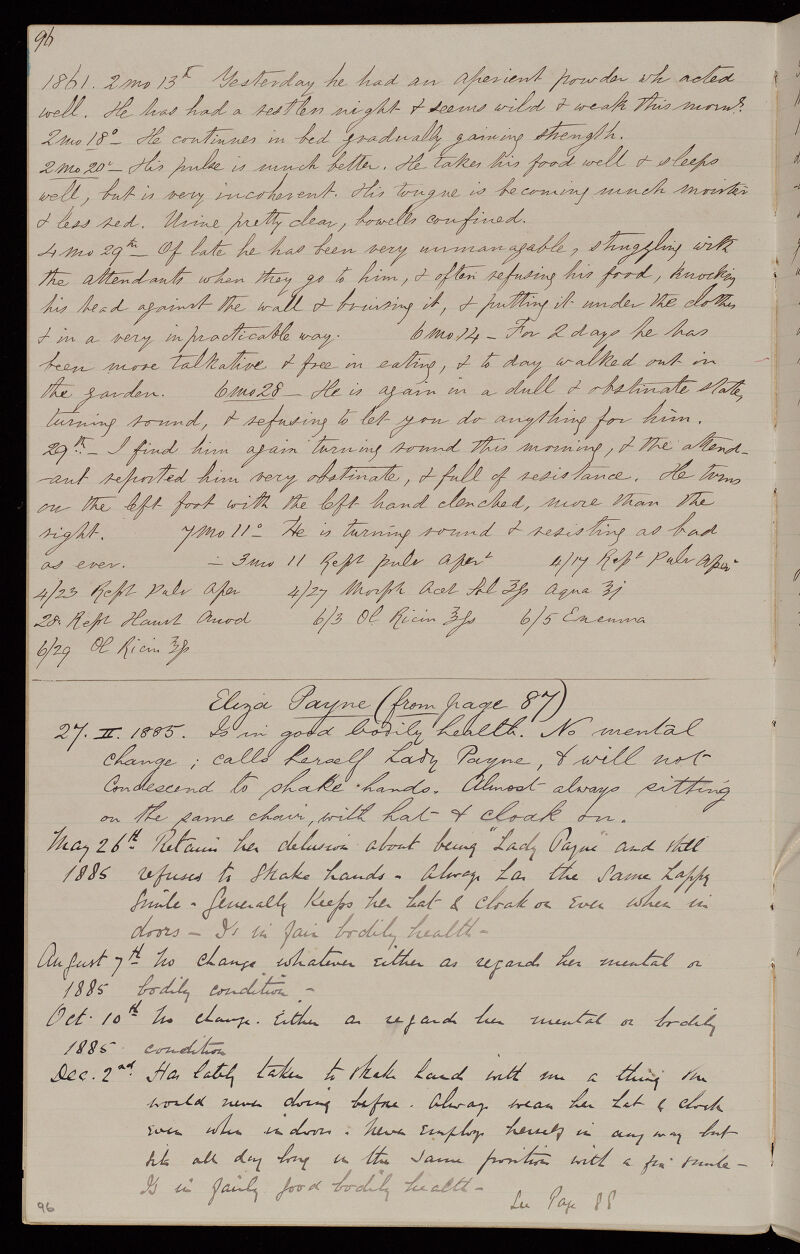 96
1861. 2 mo 13th Yesterday he had an aperient powder wh acted
well. He has had a restless night & seems wild & weak this morng.
2 mo 18o – He continues in bed gradually gaining strength.
2 mo 20o – His pulse is much better. He takes his food well & sleeps
well, but is very incoherent. His tongue is becoming much moister
& less red. Urine pretty clear, bowells confined.
4 mo 29th – Of late he has been very unmanagable, struggling with
the attendants when they go to him, & often refusing his food, knocking
his head against the wall & bruising it, & putting it under the clothes
& in a very inpracticable way. 6 mo 14 – For 2 days he has
been more talkative & free in eating, & to day walked out in
the garden. 6 mo 28 – He is again in a dull & obstinate state,
turning round, & refusing to let you do anything for him.
29th – I find him again turning round this morning, & the attend-
-ant reported him very obstinate, & full of resistance. He turns
on the left foot with the left hand clenched, more than the
right. 7 mo 11o – He is turning round & resisting as bad
as ever. – 3 mo 11 Rept pulv apert 4/17 Rept Pulv Aper
4/23 Rept Pulv Aper 4/27 Morph Acet Sol ʒſs Aqua ℥j
28 Rept Haust Anod 6/3 Ol Ricin ℥ſs 6/5 Enenma
6/29 Ol Ricin ℥ſs
Eliza Payne (from page 87)
27. II. 1885. Is in good bodily health. No mental
change; calls herself Lady Payne, & will not
condescend to shake hands. Almost always sitting
on the same chair, with hat & cloak on.
May 26th Retains her delusion about being "Lady Payne" and still
1885 refuses to shake hands – always has the same happy
smile – generally keeps her hat & cloak on even when in
doors – Is in fair bodily health –
August 7th No change whatever either as regards her mental or
1885 bodily condition –
Oct. 10th No change. Either as regards her mental or bodily
1885 condition
Dec. 2nd Has lately taken to shake hands with me a thing she
would never doing before. Always wears her hat & cloak
even when indoors. Never employs herself in any way but
sits all day long in the same position with a smile –
Is in fairly good bodily health –
See Page 88
96